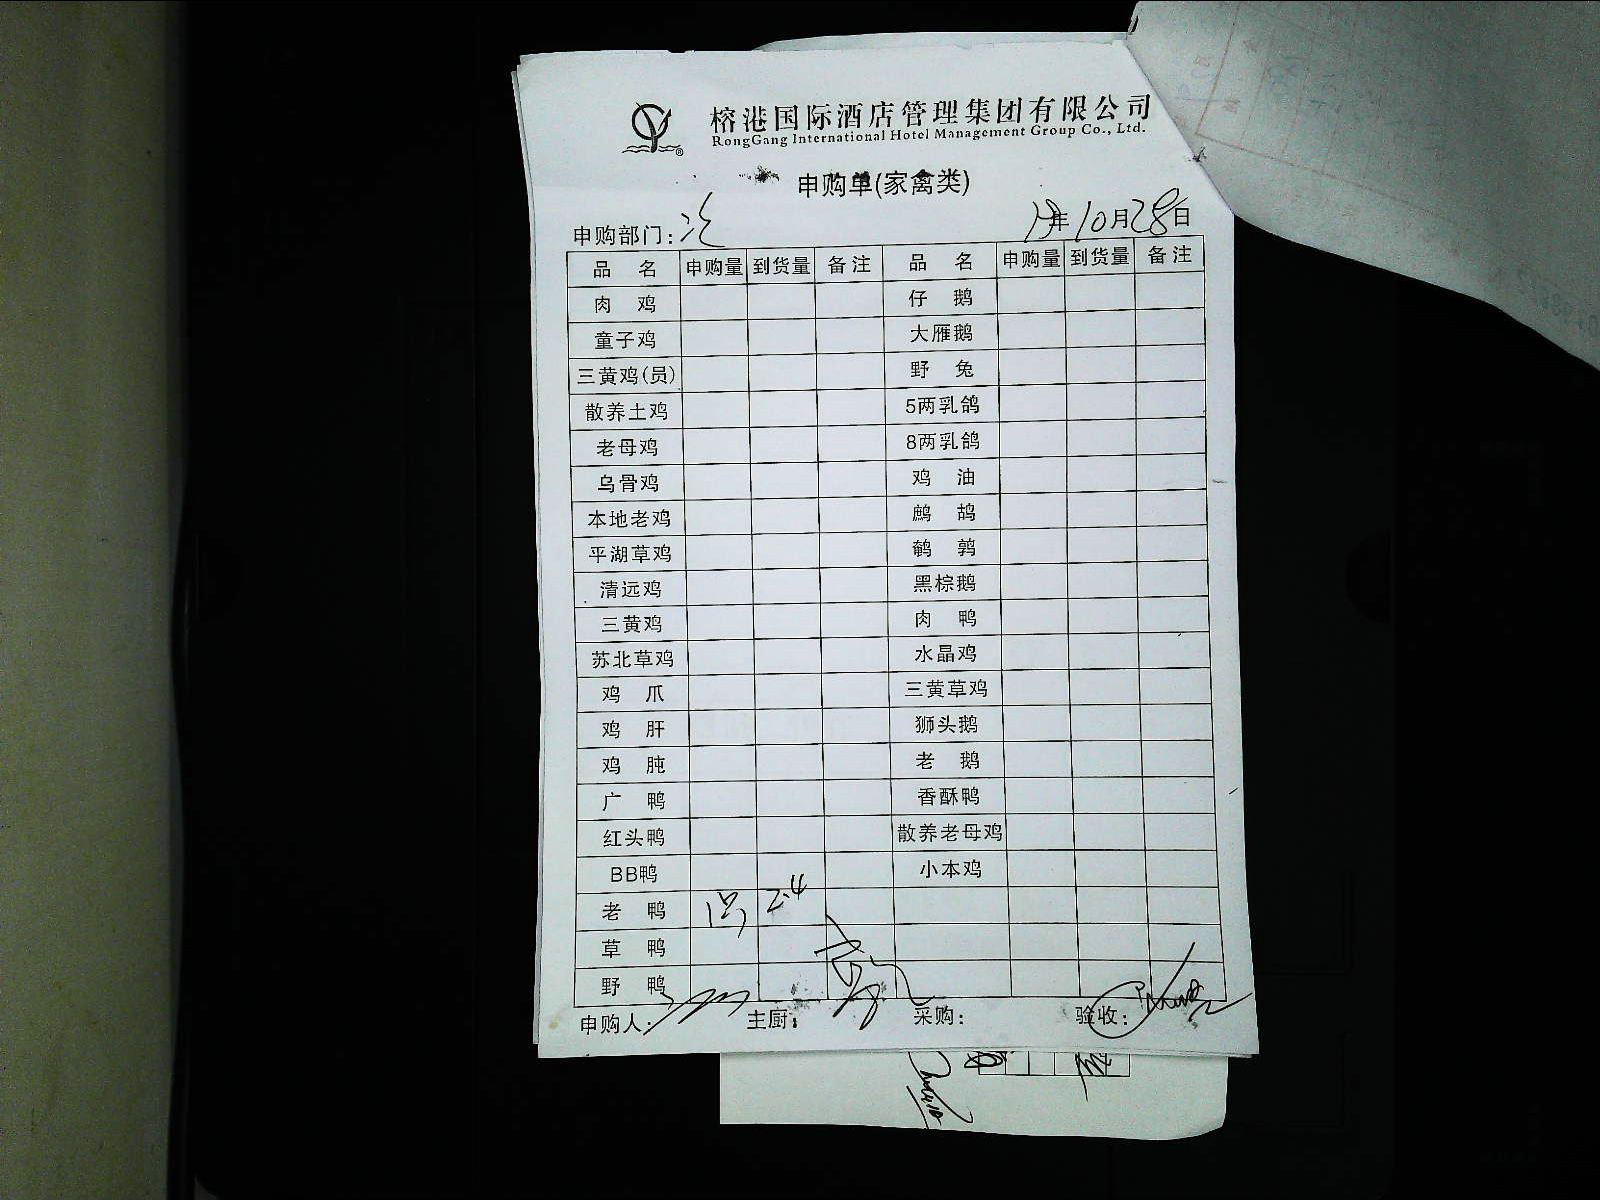 榕港国际酒店管理集团有限公司
RongGang International Hotel Management Group Co., Ltd.
申购单(家禽类)
申购部门: 年10月28日
品 名 申购量 到货量 备注 品 名 申购量 到货量 备注
肉 鸡 仔 鹅
童子鸡 大雁鹅
三黄鸡(员) 野 兔
散养土鸡 5两乳鸽
老母鸡 8两乳鸽
乌骨鸡 鸡 油
本地老鸡 鹧 鸪
平湖草鸡 鹌 鹑
清远鸡 黑棕鹅
三黄鸡 肉 鸭
苏北草鸡 水晶鸡
鸡 爪 三黄草鸡
鸡 肝 狮头鹅
鸡 肫 老 鹅
广 鸭 香酥鸭
红头鸭 散养老母鸡
BB鸭 小本鸡
老 鸭 1只 2.4
草 鸭
野 鸭
申购人: 主厨: 采购: 验收: